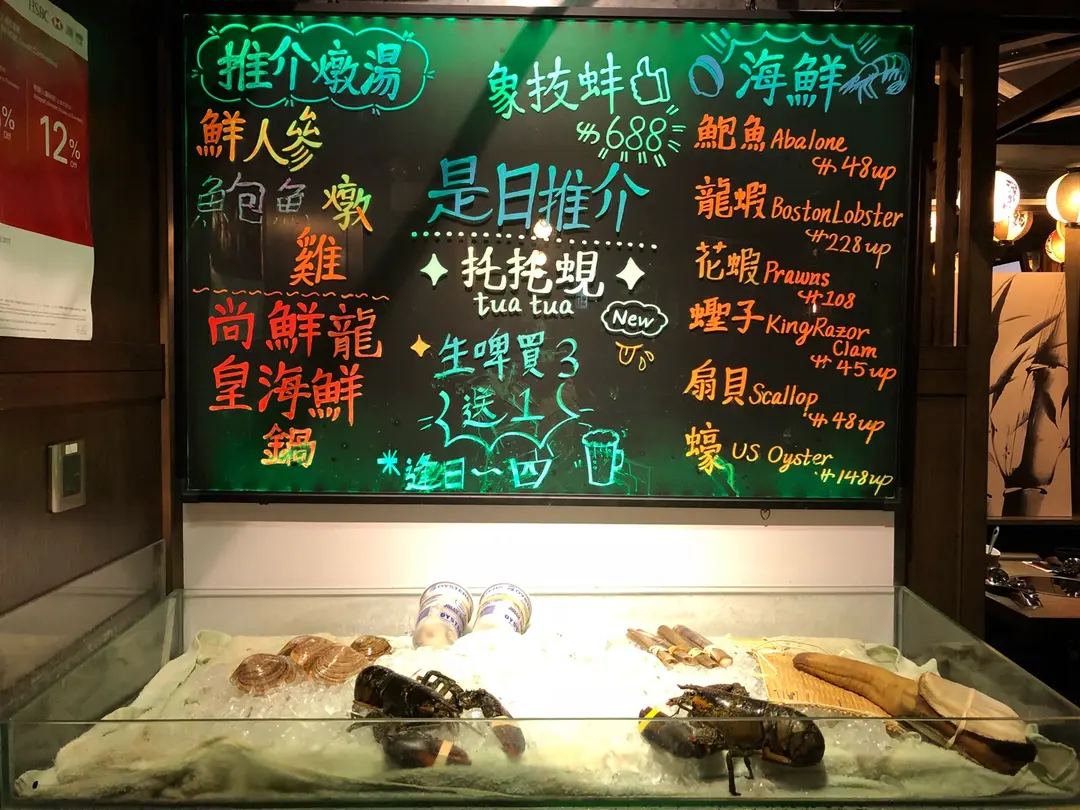 HSBC
%
Off
12%
Off
推介燉湯
鮮人參
鮑魚 燉
雞
尚鮮龍
皇海鮮
鍋
象拔蚌
$688
是日推介
托托蜆
tua tua
New
生啤買3
送1
*逢日一四
海鮮
鮑魚 Abalone
$48up
龍蝦 Boston Lobster
$228up
花蝦 Prawns
$108
蟶子 King Razor
Clam
$45up
扇貝 Scallop
$48up
蠔 US Oyster
$148up
OYSTER
OYSTER